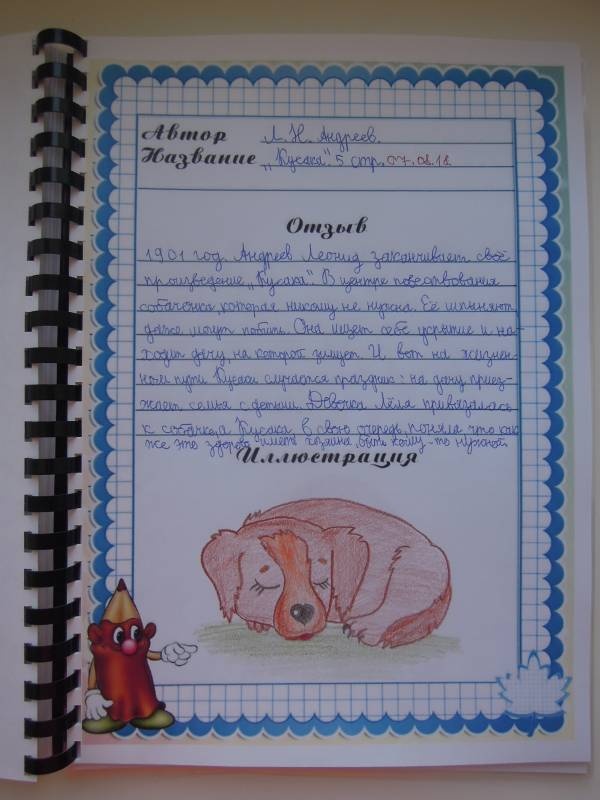 Автор Л. Н. Андреев.
Название „Кусака". 5 стр. 07.08.18
Отзыв
1901 год. Андреев Леонид заканчивает своё
произведение „Кусака". В центре повествования
собачонка, которая никому не нужна. Её шпыняют,
даже могут побить. Она ищет себе укрытие и на-
ходит дачу, на которой зимует. И вот на жизнен-
ном пути Кусаки случается праздник: на дачу приез-
жает семья с детьми. Девочка Лёля привязалась
к собачке, а Кусака в свою очередь поняла, что как
же это здорово иметь хозяина, быть кому-то нужной.
Иллюстрация